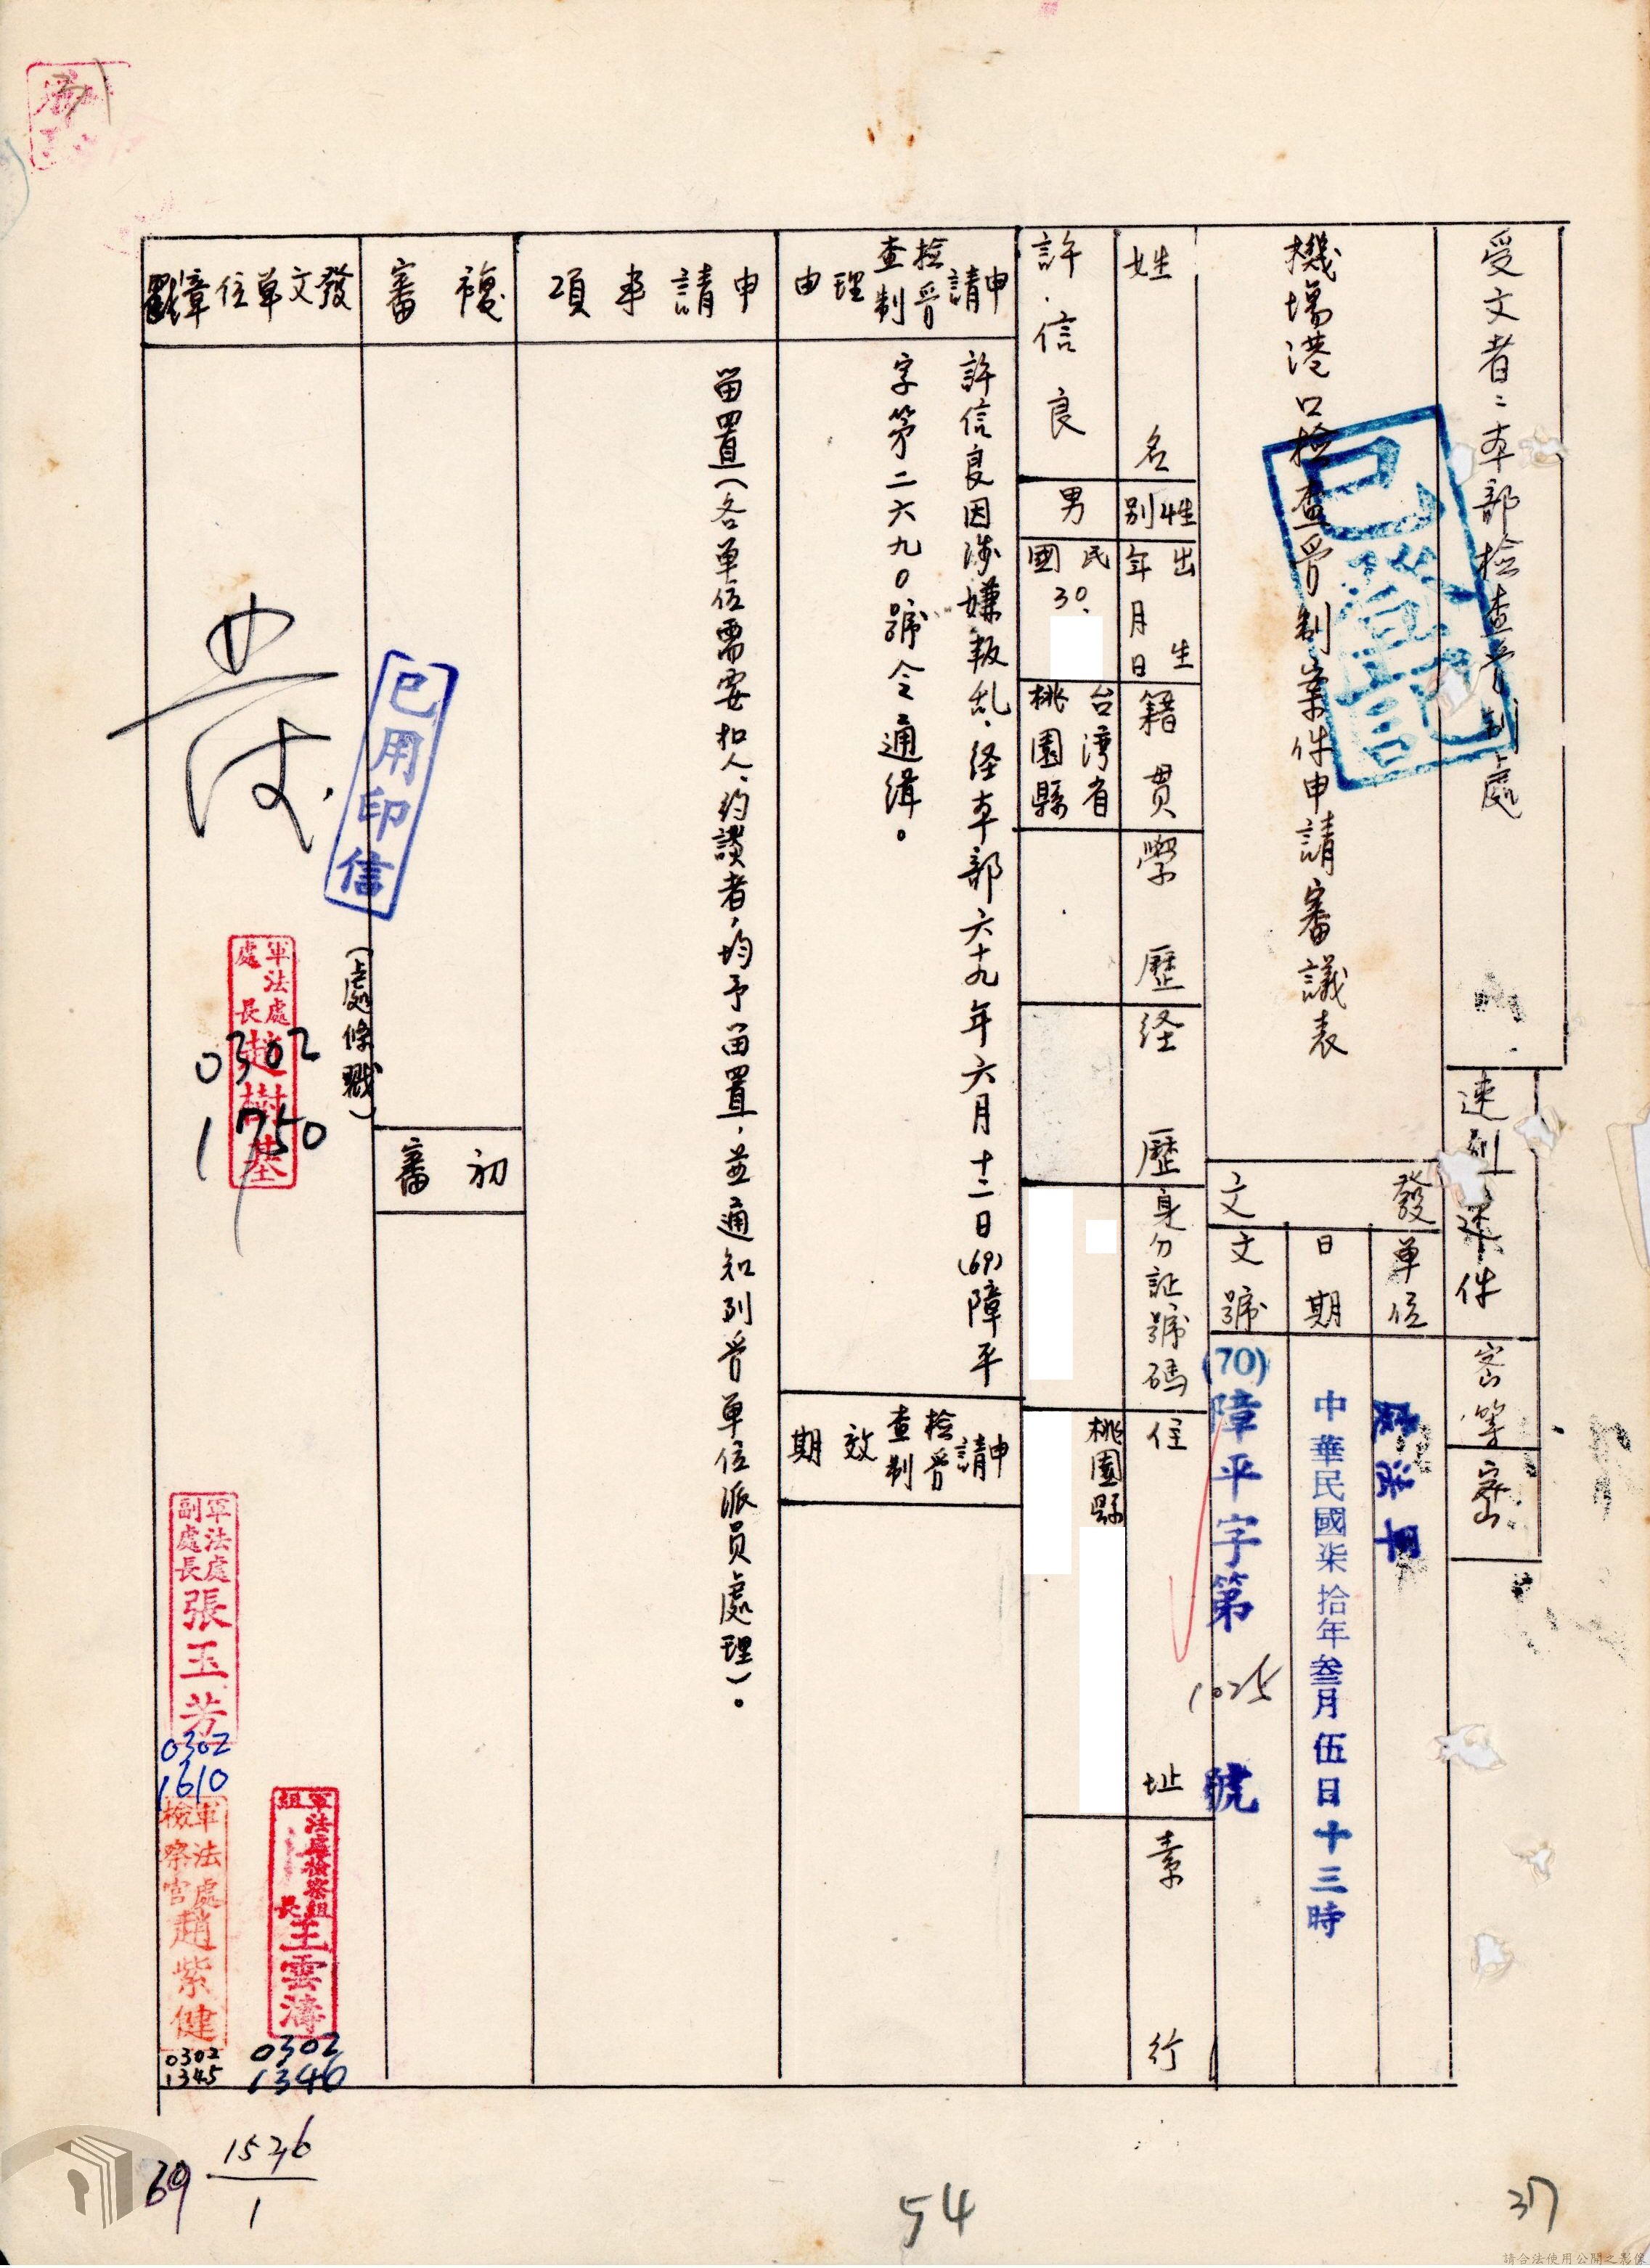 受文者：本部檢查管制處
速別
速件
密等
密
機場港口檢查管制案件申請審議表
已登記
發文
單位
日期
中華民國柒拾年叁月伍日十三時
文號
(70)障平字第1025號
姓名
性別
出生年月日
籍貫
學歷
経歷
身分証號碼
住址
素行
許信良
男
民國30.
台灣省桃園縣
桃園縣
申請檢查管制理由
許信良因涉嫌叛乱，経本部六十九年六月十二日(69)障平
字第二六九0號令通緝。
申請檢查管制效期
申請事項
留置(各單位需要扣人、約談者，均予留置，並通知列管單位派員處理)。
複審
初審
發文單位章戳
(處條戳)
已用印信
軍法處處長趙樹基
0302
1750
軍法處副處長張玉芳
0302
1610
軍法處檢察組組長王雲濤
0302
1346
軍法處檢察官趙紫健
0302
1345
69
1536
1
54
37
請合法使用公開之影像